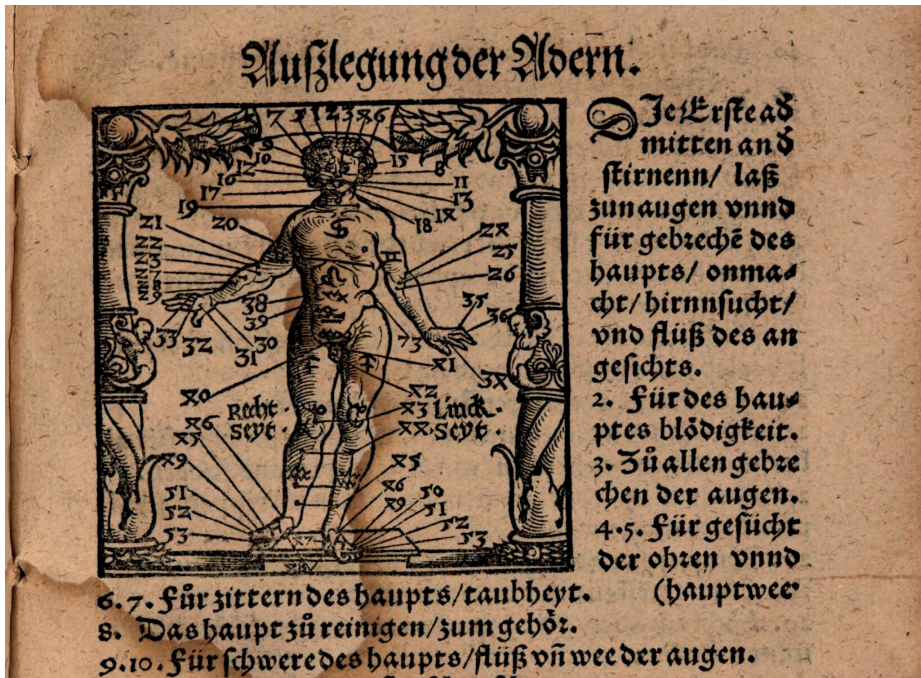 Außlegung der Adern̄.
7 5 1 2 3 8 6
15
8
16
11
17
13
19
18
21
20
28
25
26
38
39
35
36
33
32
31
30
73
81
80
82
Recht
Seyt
83
Linck
Seyt
88
86
85
89
51
52
53
85
86
89
50
51
52
53
DIe Erste ad̄
mitten an d̄
stirnenn/ laß
zun augen vnnd
für gebrechē des
haupts/ onma⸗
cht/ hirnnsucht/
vnd flüß des an
gesichts.
2. Für des hau⸗
ptes blödigkeit.
3. Zů allen gebre
chen der augen.
4.5. Für gesücht
der ohren vnnd
(hauptwee
6.7. Für zittern des haupts/taubheyt.
8. Das haupt zů reinigen/zum gehör.
9.10. Für schwere des haupts/flüß vn̄ wee der augen.